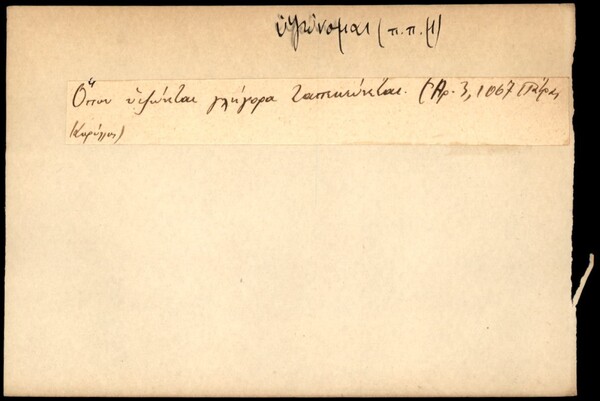 ὑψώνομαι (π.π. 1)
Ὅπου ὑψώνεται γλήγορα ταπεινώνεται. (Ἀρ. 3, 1067 Πάτραι